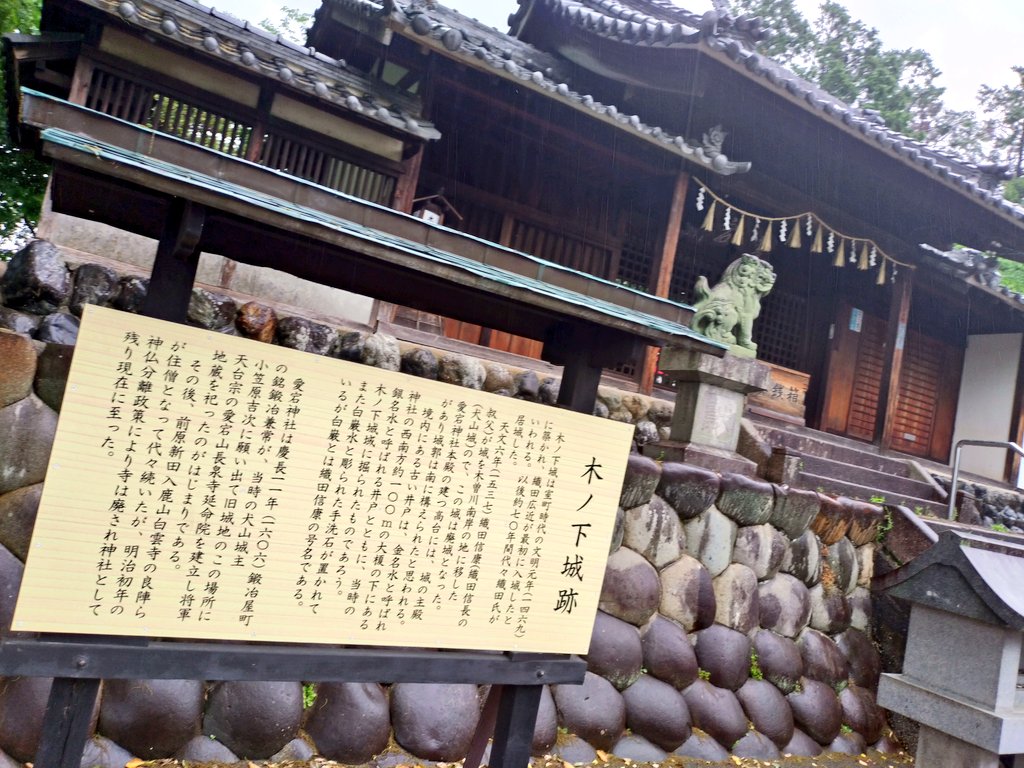 木ノ下城跡
木ノ下城は室町時代の文明元年(一四六九)
に築かれ、織田広近が最初に入城したと
いわれる。以後約七〇年間代々織田氏が
居城した。
天文六年(一五三七)織田信康(織田信長の
叔父)が城を木曽川南岸の地に移した
(犬山城)ので、この城は廃城となった。
愛宕神社本殿の建つ高台には、城の主殿
があり城郭は南に構えられたと思われる。
境内にある古い井戸は、金名水と呼ばれ
神社の西南方約一〇〇mの大榎の下にある
銀名水と呼ばれる井戸とともに、当時の
木ノ下城城域に掘られたものであろう。
また白厳水と彫られた手洗石が置かれて
いるが白厳とは織田信康の号名である。
愛宕神社は慶長一一年(一六〇六)鍛冶屋町
の銘鍛冶兼常が、当時の犬山城主
小笠原吉次に願い出て旧城地のこの場所に
天台宗の愛宕山長泉寺延命院を建立し将軍
地蔵を祀ったのがはじまりである。
その後、前原新田入鹿山白雲寺の良陣ら
が住僧となって代々続いたが、明治初年の
神仏分離政策により寺は廃され神社として
残り現在に至った。
銭箱